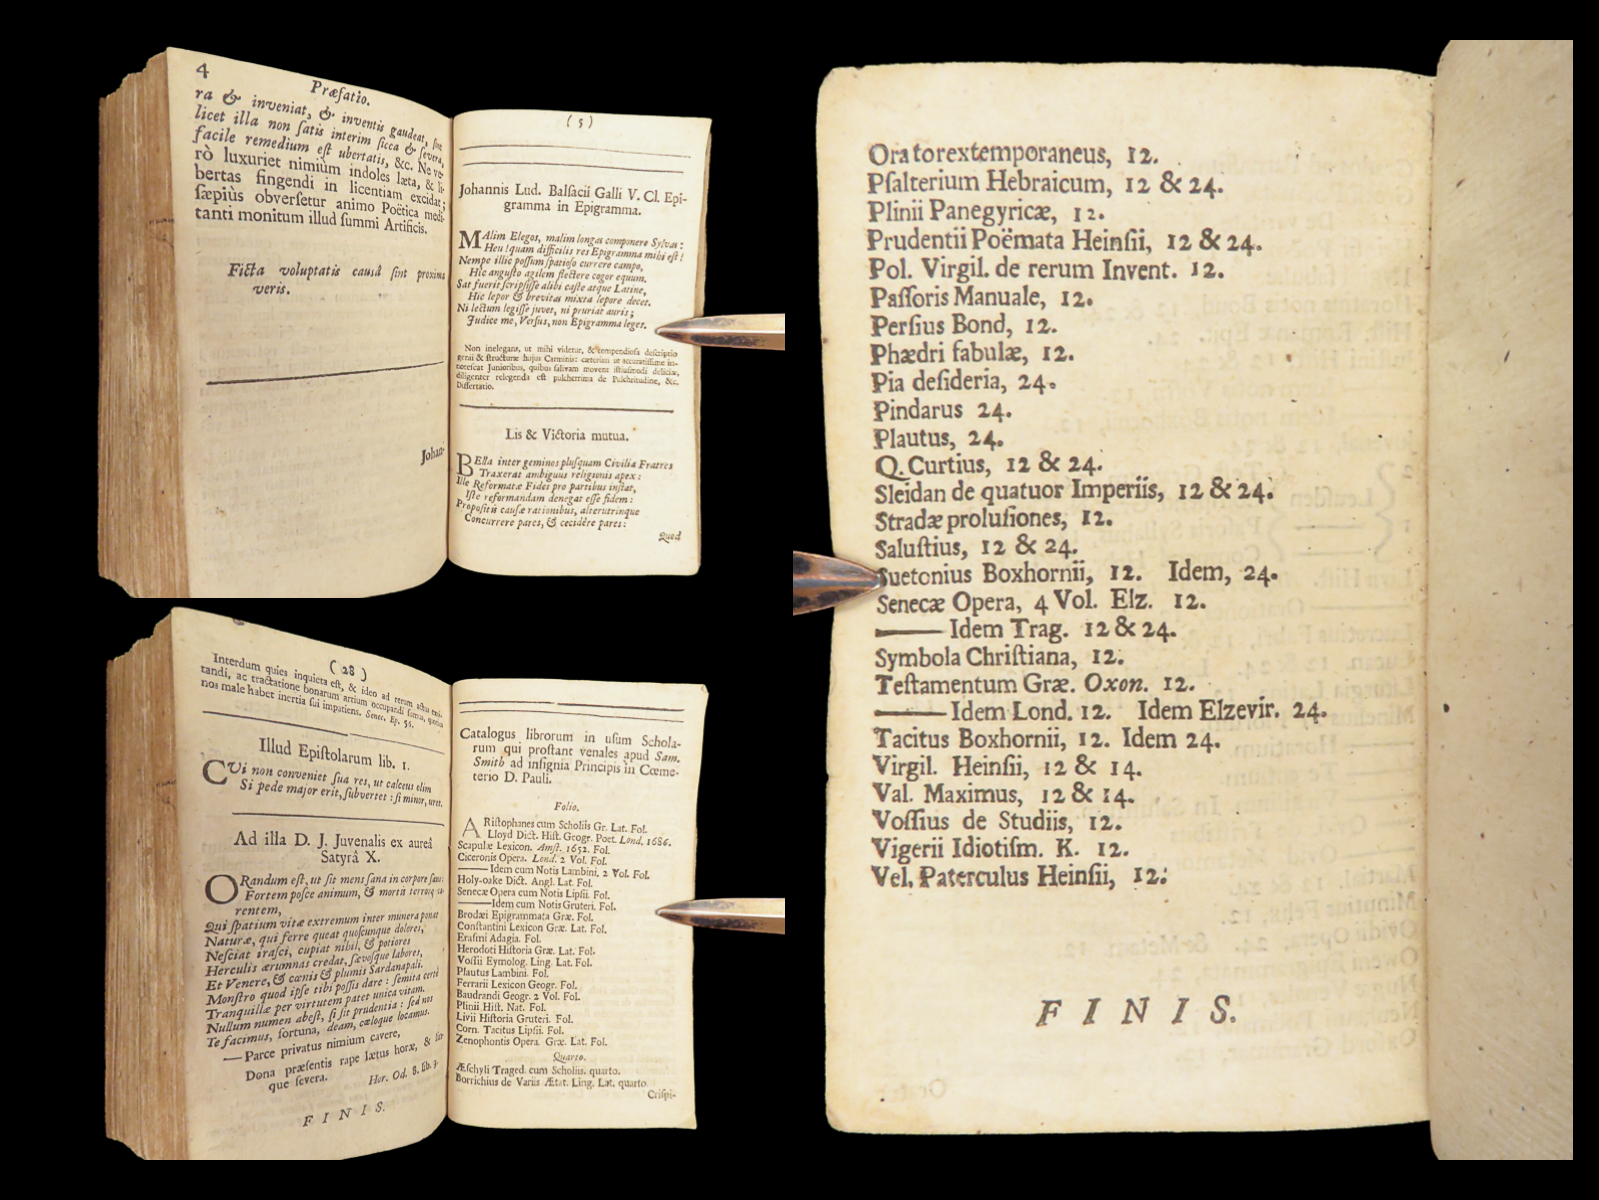 4
Præfatio.
ra & inveniat, & inventis gaudeat, sint
licet illa non satis interim sicca & severa,
facile remedium est ubertatis, &c. Ne ve-
rò luxuriet nimiùm indoles læta, & li-
bertas fingendi in licentiam excidat;
sæpiùs obversetur animo Poëtica medi-
tanti monitum illud summi Artificis.
Ficta voluptatis causâ sint proxima
veris.
Johan-
( 5 )
Johannis Lud. Balsacii Galli V. Cl. Epi-
gramma in Epigramma.
MAlim Elegos, malim longas componere Sylvas:
Heu! quam difficilis res Epigramma mihi est!
Nempe illic possum spatioso currere campo,
Hic angusto agilem flectere cogor equum.
Sat fuerit scripsisse alibi caste atque Latine,
Hic lepor & brevitas mixta lepore decet.
Ni lectum legisse juvet, ni pruriat auris;
Judice me, Versus, non Epigramma leges.
Non inelegans, ut mihi videtur, & compendiosa descriptio
genii & structuræ hujus Carminis: cæterùm ut accuratissime in-
notescat Junioribus, quibus salivam movent istiusmodi deliciæ,
diligenter relegenda est pulcherrima de Pulchritudine, &c.
Dissertatio.
Lis & Victoria mutua.
BElla inter geminos plusquam Civilia Fratres
Traxerat ambiguus religionis apex:
Ille Reformatæ Fidei pro partibus instat,
Iste reformandam denegat esse fidem:
Propositis causæ rationibus, alterutrinque
Concurrere pares, & cecidêre pares:
Quod
( 28 )
Interdum quies inquieta est, & ideo ad rerum actus
tandi, ac tractatione bonarum artium occupandi sumus, quoties
nos male habet inertia sui impatiens. Senec. Ep. 56.
Illud Epistolarum lib. 1.
CUi non conveniet sua res, ut calceus olim
Si pede major erit, subvertet: si minor, uret.
Ad illa D. J. Juvenalis ex aureâ
Satyrâ X.
ORandum est, ut sit mens sana in corpore sano:
Fortem posce animum, & mortis terrore ca-
rentem,
Qui spatium vitæ extremum inter munera ponat
Naturæ, qui ferre queat quoscunque dolores,
Nesciat irasci, cupiat nihil, & potiores
Herculis ærumnas credat, sævosque labores,
Et Venere, & cœnis & plumis Sardanapali.
Monstro quod ipse tibi possis dare: semita certè
Tranquillæ per virtutem patet unica vitam.
Nullum numen abest, si sit prudentia: sed nos
Te facimus, fortuna, deam, cæloque locamus.
—Parce privatus nimium cavere,
Dona præsentis rape lætus horæ, & lin-
que severa.
Hor. Od. 8. lib. 3.
F I N I S.
Catalogus librorum in usum Schola-
rum qui prostant venales apud Sam.
Smith ad insignia Principis in Cœme-
terio D. Pauli.
Folio.
ARistophanes cum Scholiis Gr. Lat. Fol.
Lloyd Dict. Hist. Geogr. Poet. Lond. 1686.
Scapulæ Lexicon. Amst. 1652. Fol.
Ciceronis Opera. Lond. 2 Vol. Fol.
——Idem cum Notis Lambini. 2 Vol. Fol.
Holy-oake Dict. Angl. Lat. Fol.
Senecæ Opera cum Notis Lipsii. Fol.
——Idem cum Notis Gruteri. Fol.
Brodæi Epigrammata Græ. Fol.
Constantini Lexicon Græ. Lat. Fol.
Erasmi Adagia. Fol.
Herodoti Historia Græ. Lat. Fol.
Vossii Eymolog. Ling. Lat. Fol.
Plautus Lambini. Fol.
Ferrarii Lexicon Geogr. Fol.
Baudrandi Geogr. 2 Vol. Fol.
Plinii Hist. Nat. Fol.
Livii Historia Gruteri. Fol.
Corn. Tacitus Lipsii. Fol.
Zenophontis Opera. Græ. Lat. Fol.
Quarto.
Æschyli Traged. cum Scholiis. quarto.
Borrichius de Variis Ætat. Ling. Lat. quarto
Crispi-
Orator extemporaneus, 12.
Psalterium Hebraicum, 12 & 24.
Plinii Panegyricæ, 12.
Prudentii Poëmata Heinsii, 12 & 24.
Pol. Virgil. de rerum Invent. 12.
Passoris Manuale, 12.
Persius Bond, 12.
Phædri fabulæ, 12.
Pia desideria, 24.
Pindarus 24.
Plautus, 24.
Q. Curtius, 12 & 24.
Sleidan de quatuor Imperiis, 12 & 24.
Stradæ prolusiones, 12.
Salustius, 12 & 24.
Suetonius Boxhornii, 12. Idem, 24.
Senecæ Opera, 4 Vol. Elz. 12.
—— Idem Trag. 12 & 24.
Symbola Christiana, 12.
Testamentum Græ. Oxon. 12.
—— Idem Lond. 12. Idem Elzevir. 24.
Tacitus Boxhornii, 12. Idem 24.
Virgil. Heinsii, 12 & 14.
Val. Maximus, 12 & 14.
Vossius de Studiis, 12.
Vigerii Idiotism. K. 12.
Vel. Paterculus Heinsii, 12.
F I N I S.